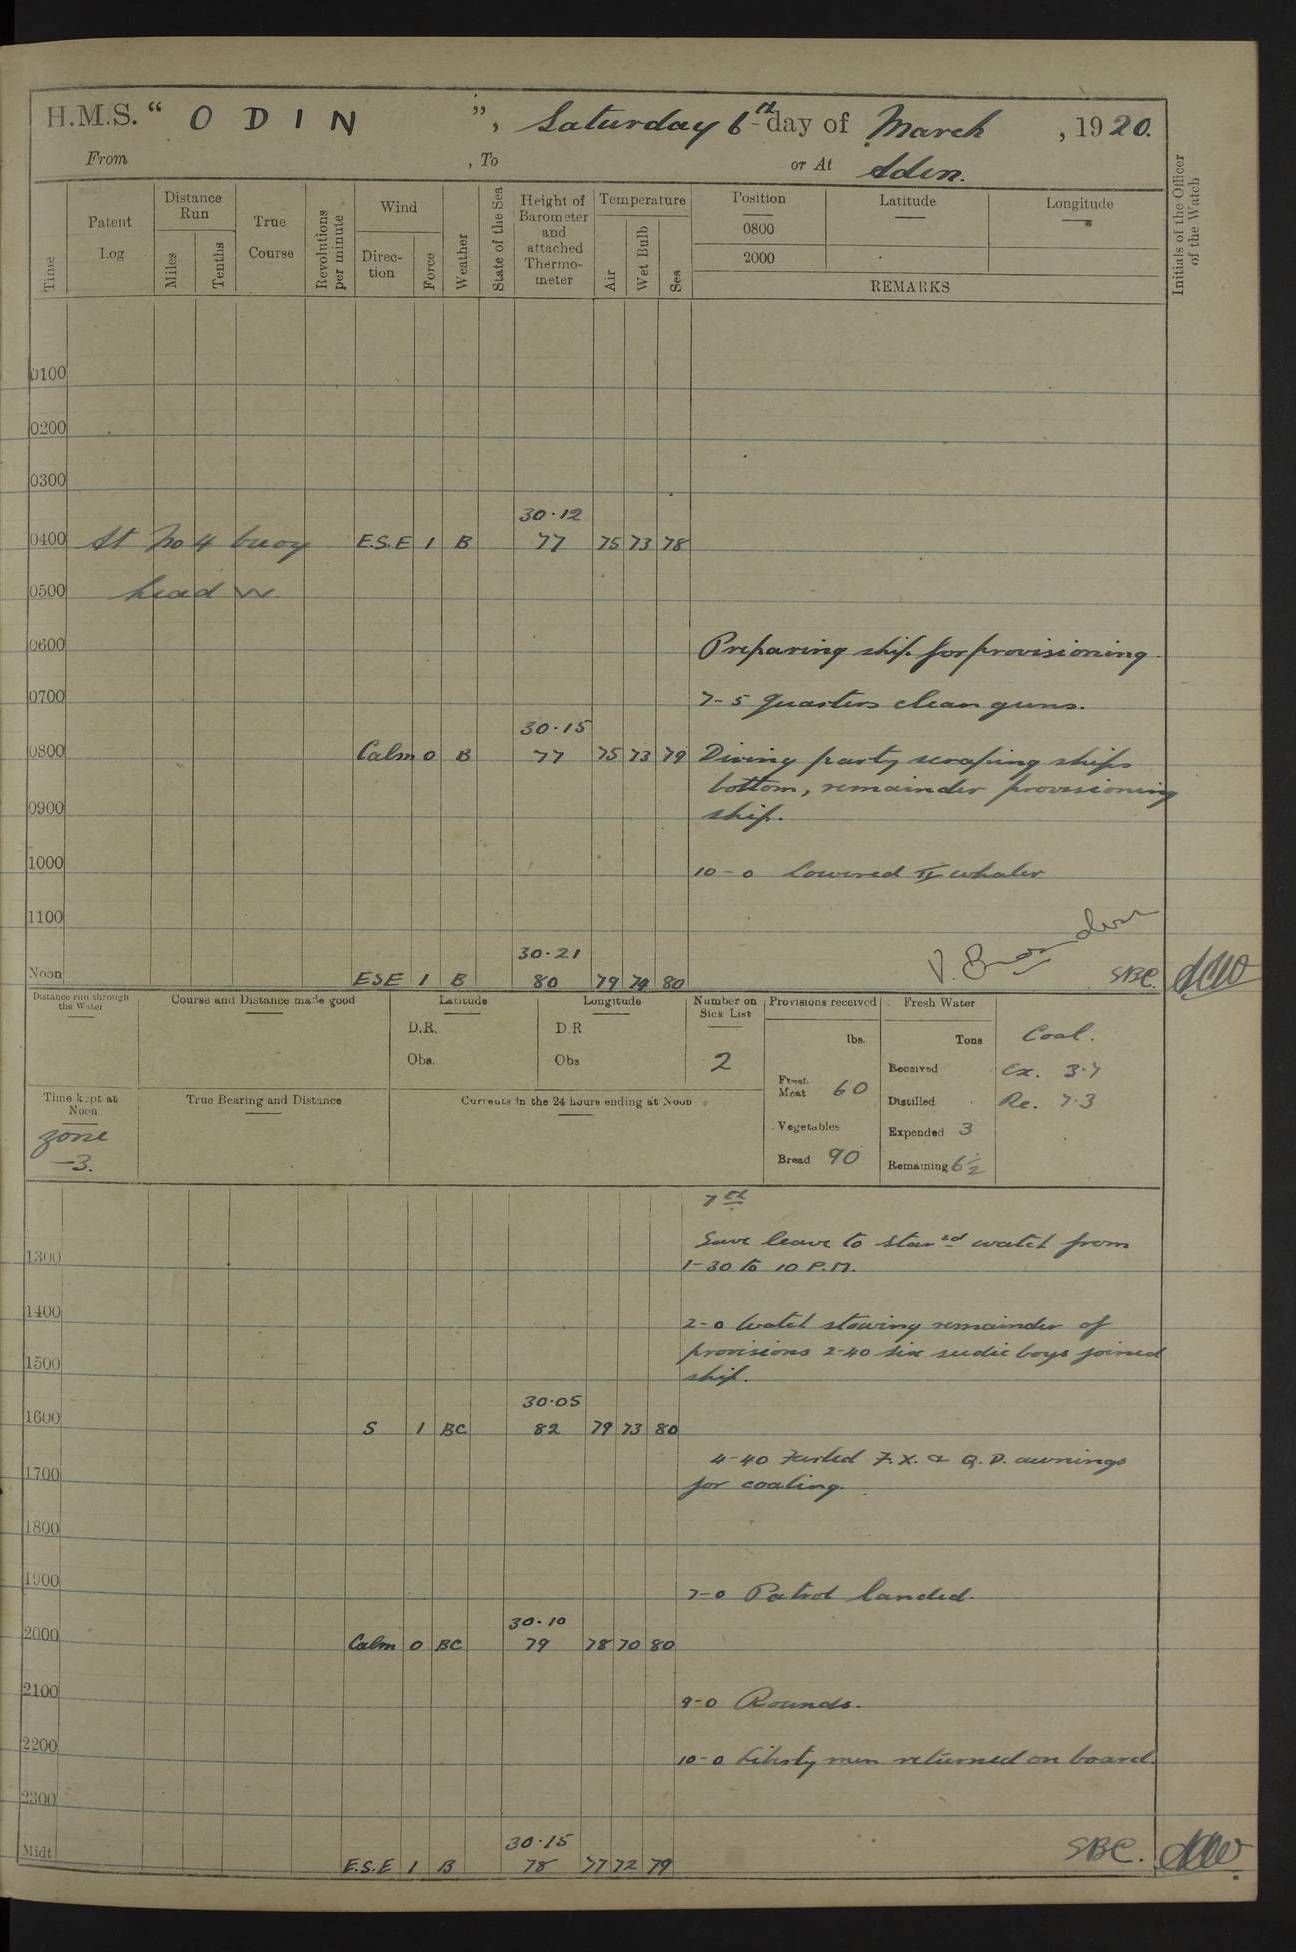 H.M.S. “ O D I N ”, Saturday 6th day of March , 1920.
From , To or At Aden.
Time
Patent Log
Distance Run
Miles
Tenths
True Course
Revolutions per minute
Wind
Direction
Force
Weather
State of the Sea
Height of Barometer and attached Thermometer
Temperature
Air
Wet Bulb
Sea
Position
Latitude
Longitude
0800
2000
REMARKS
Initials of the Officer of the Watch
0100
0200
0300
30.12
0400 At No 4 buoy E.S.E 1 B 77 75 73 78
0500 head W.
0600 Preparing ship for provisioning.
0700 7-5 Quarters clean guns.
30.15
0800 Calm 0 B 77 75 73 79 Diving party scraping ships
bottom, remainder provisioning
0900 ship.
1000 10-0 Lowered II whaler
1100
30.21
Noon ESE 1 B 80 79 74 80 SBC.
Distance run through the Water
Course and Distance made good
Latitude
D.R.
Obs.
Longitude
D.R
Obs
Number on Sick List
2
Provisions received
lbs.
Fresh Meat 60
Vegetables
Bread 90
Fresh Water
Tons
Received
Distilled
Expended 3
Remaining 6½
Coal.
Ex. 3.7
Re. 7.3
Time kept at Noon
zone
-3.
True Bearing and Distance
Currents in the 24 hours ending at Noon
Gave leave to starbd watch from
1300 1-30 to 10 P.M.
1400 2-0 Watch stowing remainder of
provisions 2-40 six seedie boys joined
1500 ship.
30.05
1600 S 1 BC 82 79 73 80
4-40 Furled F.X. & Q.D. awnings
1700 for coaling.
1800
1900 7-0 Patrol landed.
30.10
2000 Calm 0 BC 79 78 70 80
2100 9-0 Rounds.
2200 10-0 Liberty men returned on board.
2300
30.15
Midt E.S.E 1 B 78 77 72 79 SBC.